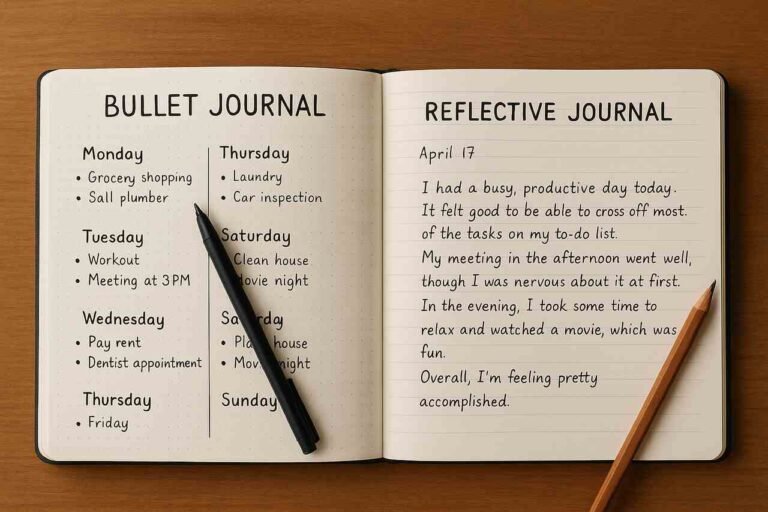 BULLET JOURNAL
Monday
• Grocery shopping
• Sall plumber
Tuesday
• Workout
• Meeting at 3 PM
Wednesday
• Pay rent
• Dentist appointment
Thursday
• Friday
Thursday
• Laundry
• Car inspection
Saturday
Clean house
Movie night
Sa day
• Pla house
• Mov night
Sunday
REFLECTIVE JOURNAL
April 17
I had a busy, productive day today.
It felt good to be able to cross off most.
of the tasks on my to-do list.
My meeting in the afternoon went well,
though I was nervous about it at first.
In the evening, I took some time to
relax and watched a movie, which was
fun.
Overall, I'm feeling pretty
accomplished.